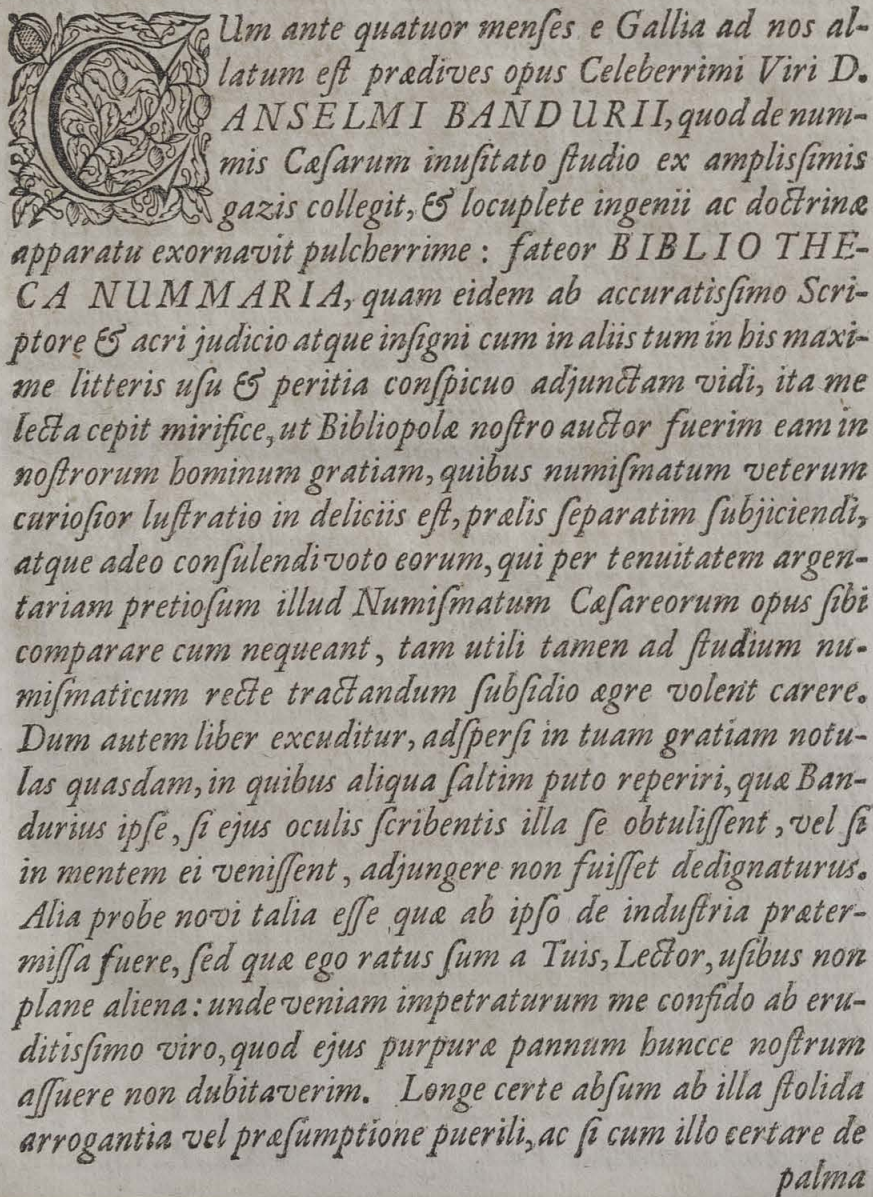 CUm ante quatuor menſes e Gallia ad nos al-
latum eſt prædives opus Celeberrimi Viri D.
ANSELMI BANDURII, quod de num-
mis Cæſarum inuſitato ſtudio ex amplisſimis
gazis collegit, & locuplete ingenii ac doctrinæ
apparatu exornavit pulcherrime : fateor BIBLIO THE-
CA NUMMARIA, quam eidem ab accuratisſimo Scri-
ptore & acri judicio atque inſigni cum in aliis tum in his maxi-
me litteris uſu & peritia conſpicuo adjunctam vidi, ita me
lecta cepit mirifice, ut Bibliopolæ noſtro auctor fuerim eam in
noſtrorum hominum gratiam, quibus numiſmatum veterum
curioſior luſtratio in deliciis eſt, prælis ſeparatim ſubjiciendi,
atque adeo conſulendi voto eorum, qui per tenuitatem argen-
tariam pretioſum illud Numiſmatum Cæſareorum opus ſibi
comparare cum nequeant, tam utili tamen ad ſtudium nu-
miſmaticum recte tractandum ſubſidio ægre volent carere.
Dum autem liber excuditur, adſperſi in tuam gratiam notu-
las quasdam, in quibus aliqua ſaltim puto reperiri, quæ Ban-
durius ipſe, ſi ejus oculis ſcribentis illa ſe obtuliſſent, vel ſi
in mentem ei veniſſent, adjungere non fuiſſet dedignaturus.
Alia probe novi talia eſſe quæ ab ipſo de induſtria præter-
miſſa fuere, ſed quæ ego ratus ſum a Tuis, Lector, uſibus non
plane aliena: unde veniam impetraturum me confido ab eru-
ditisſimo viro, quod ejus purpuræ pannum huncce noſtrum
aſſuere non dubitaverim. Longe certe abſum ab illa ſtolida
arrogantia vel præſumptione puerili, ac ſi cum illo certare de
palma